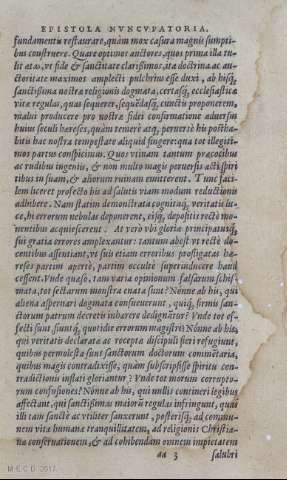 EPISTOLA NVNCVPATORIA.
fundamentũ restaurare, quàm mox casura magnis sumpti-
bus construere. Quare optimos auctores, quos prima illa tu-
lit ætas, vt fide & sanctitate clarissimos, ita doctrina ac au-
ctoritate maximos amplecti pulchrius esse duxi, ab hisq́;
sanctissima nostræ religionis dogmata, certasq́; ecclesiasticæ
vitæ regulas, quas sequerer, sequēdasq́; cunctis proponerem,
malui producere pro nostræ fidei confirmatione aduersus
huius seculi hæreses, quàm temerè atq; peruersè his posthа-
bitis hac nostra tempestate aliquid fingere: qua tot illegiti-
mos partus conspicimus. Quos vtinam tantum præcocibus
ac rudibus ingeniis, & non multo magis peruersis acti spiri
tibus in suam, & aliorum ruinam emitterent. Tunc faci-
lem liceret profecto his ad salutis viam modum reductionis
adhibere. Nam statim demonstrata cognitaq́; veritatis lu-
ce, hi errorum nebulas deponerent, eisq́; depositis rectè mo-
nentibus acquiescerent. At verò vbi gloria principatusq́;
sui gratia errores amplexantur: tantum abest vt rectè do-
centibus assentiant, vt suis etiam erroribus profligatas hæ-
reses partim apertè, partim occultè superinducere haud
cessent. Vnde quæso, tam varia opinionum falsarum schis-
mata, tot sectarum monstra enata sunt? Nónne ab his, qui
aliena aspernari dogmata consueuerunt, quiq́; firmis san-
ctorum patrum decretis inhærere dedignãtur? Vnde tot ef-
fecti sunt, suntq́; quotidie errorum magistri? Nónne ab his,
qui veritatis declaratæ ac receptæ discipuli fieri refugiunt,
quibus permolesta sunt sanctorum doctorum commētaria,
quibus magis contradixisse, quàm subscripsisse spiritu con-
tradictionis inflati gloriantur? Vnde tot morum corrupto-
rum confusiones? Nónne ab his, qui nullis contineri legibus
affectant, qui sanctissimas maiorũ regulas infringunt, quas
illi tam sanctè ac vtiliter sanxerunt, posterisq́; ad commu-
nem vitæ humanæ tranquillitatem, ad religionis Christia-
næ conseruationem, & ad cohibendam omnem impietatem
aa 3 salubri
M·E·C·D· 2017